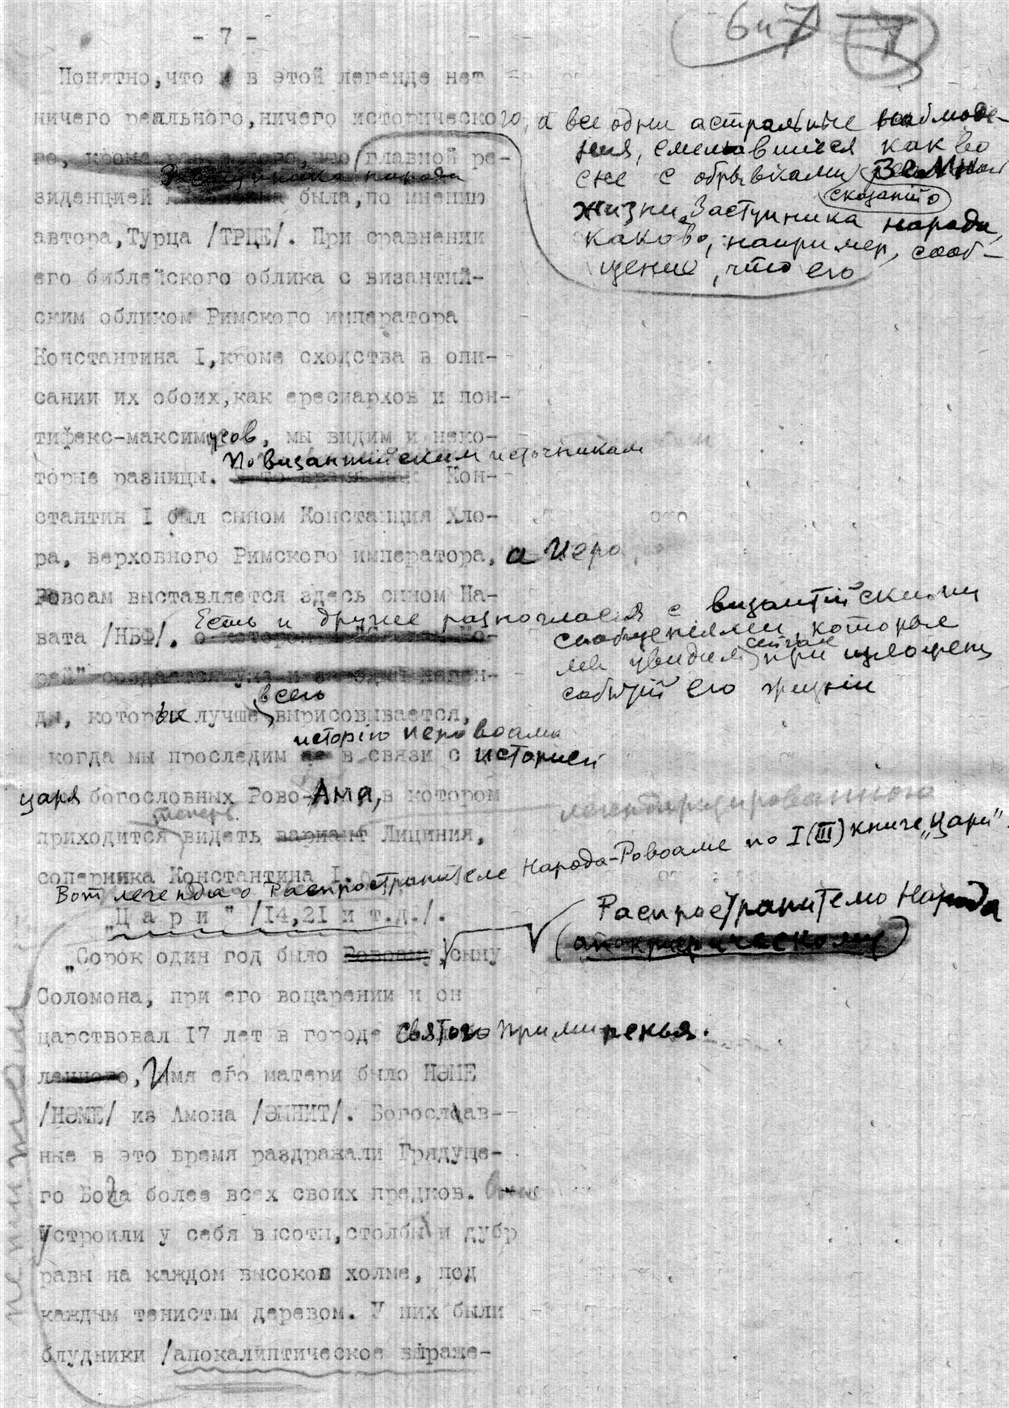 - 7 -
6и7 7
Понятно,что и в этой легенде нет
ничего реального,ничего исторического, а все одни астральные наблюде-
ния, смешавшиеся как во
сне с обрывками
сказаний о
жизни Заступника народа,
каково, например, сооб-
щение, что его
го, кроме главной ре-
Заступника народа
зиденцией была,по мнению
автора,Турца /ТРЦЕ/. При сравнении
его библейского облика с византий-
ским обликом Римского императора
Константина I,кроме сходства в опи-
сании их обоих,как ересиархов и пон-
тифекс-максимусов, мы видим и неко-
По византийским источникам
торые разницы. Кон-
стантин I был сыном Констанция Хло-
ра, верховного Римского императора, а Иеро
Ровоам выставляется здесь сыном На-
вата /НБФ/. Есть и другие разногласия с византийскими
сообщениями, которые
мы увидим сейчас при изложении
событий его жизни
ды, которые лучше всего вырисовывается,
историю Иеровоама
когда мы проследим в связи с историей
царя богословных Рово-Ама, в котором
приходится теперь видеть вариант легендаризированного Лициния,
соперника Константина I.
Вот легенда о Распространителе Народа-Ровоаме по I(III) книге „Цари".
"Цари" /14,21 и т.д./.
Распространителю Народа
(апокрифическому)
„Сорок один год было Ровоаму, сыну
Соломона, при его воцарении и он
царствовал 17 лет в городе святого примиренья.
Имя его матери было НѲМЕ
/НѲМЕ/ из Амона /ѲМНИТ/. Богослав-
ные в это время раздражали Грядуще-
го Бога более всех своих предков.
Устроили у себя высоты,столбы и дуб-
равы на каждом высоком холме, под
каждым тенистым деревом. У них были
блудники /апокалиптическое выраже-